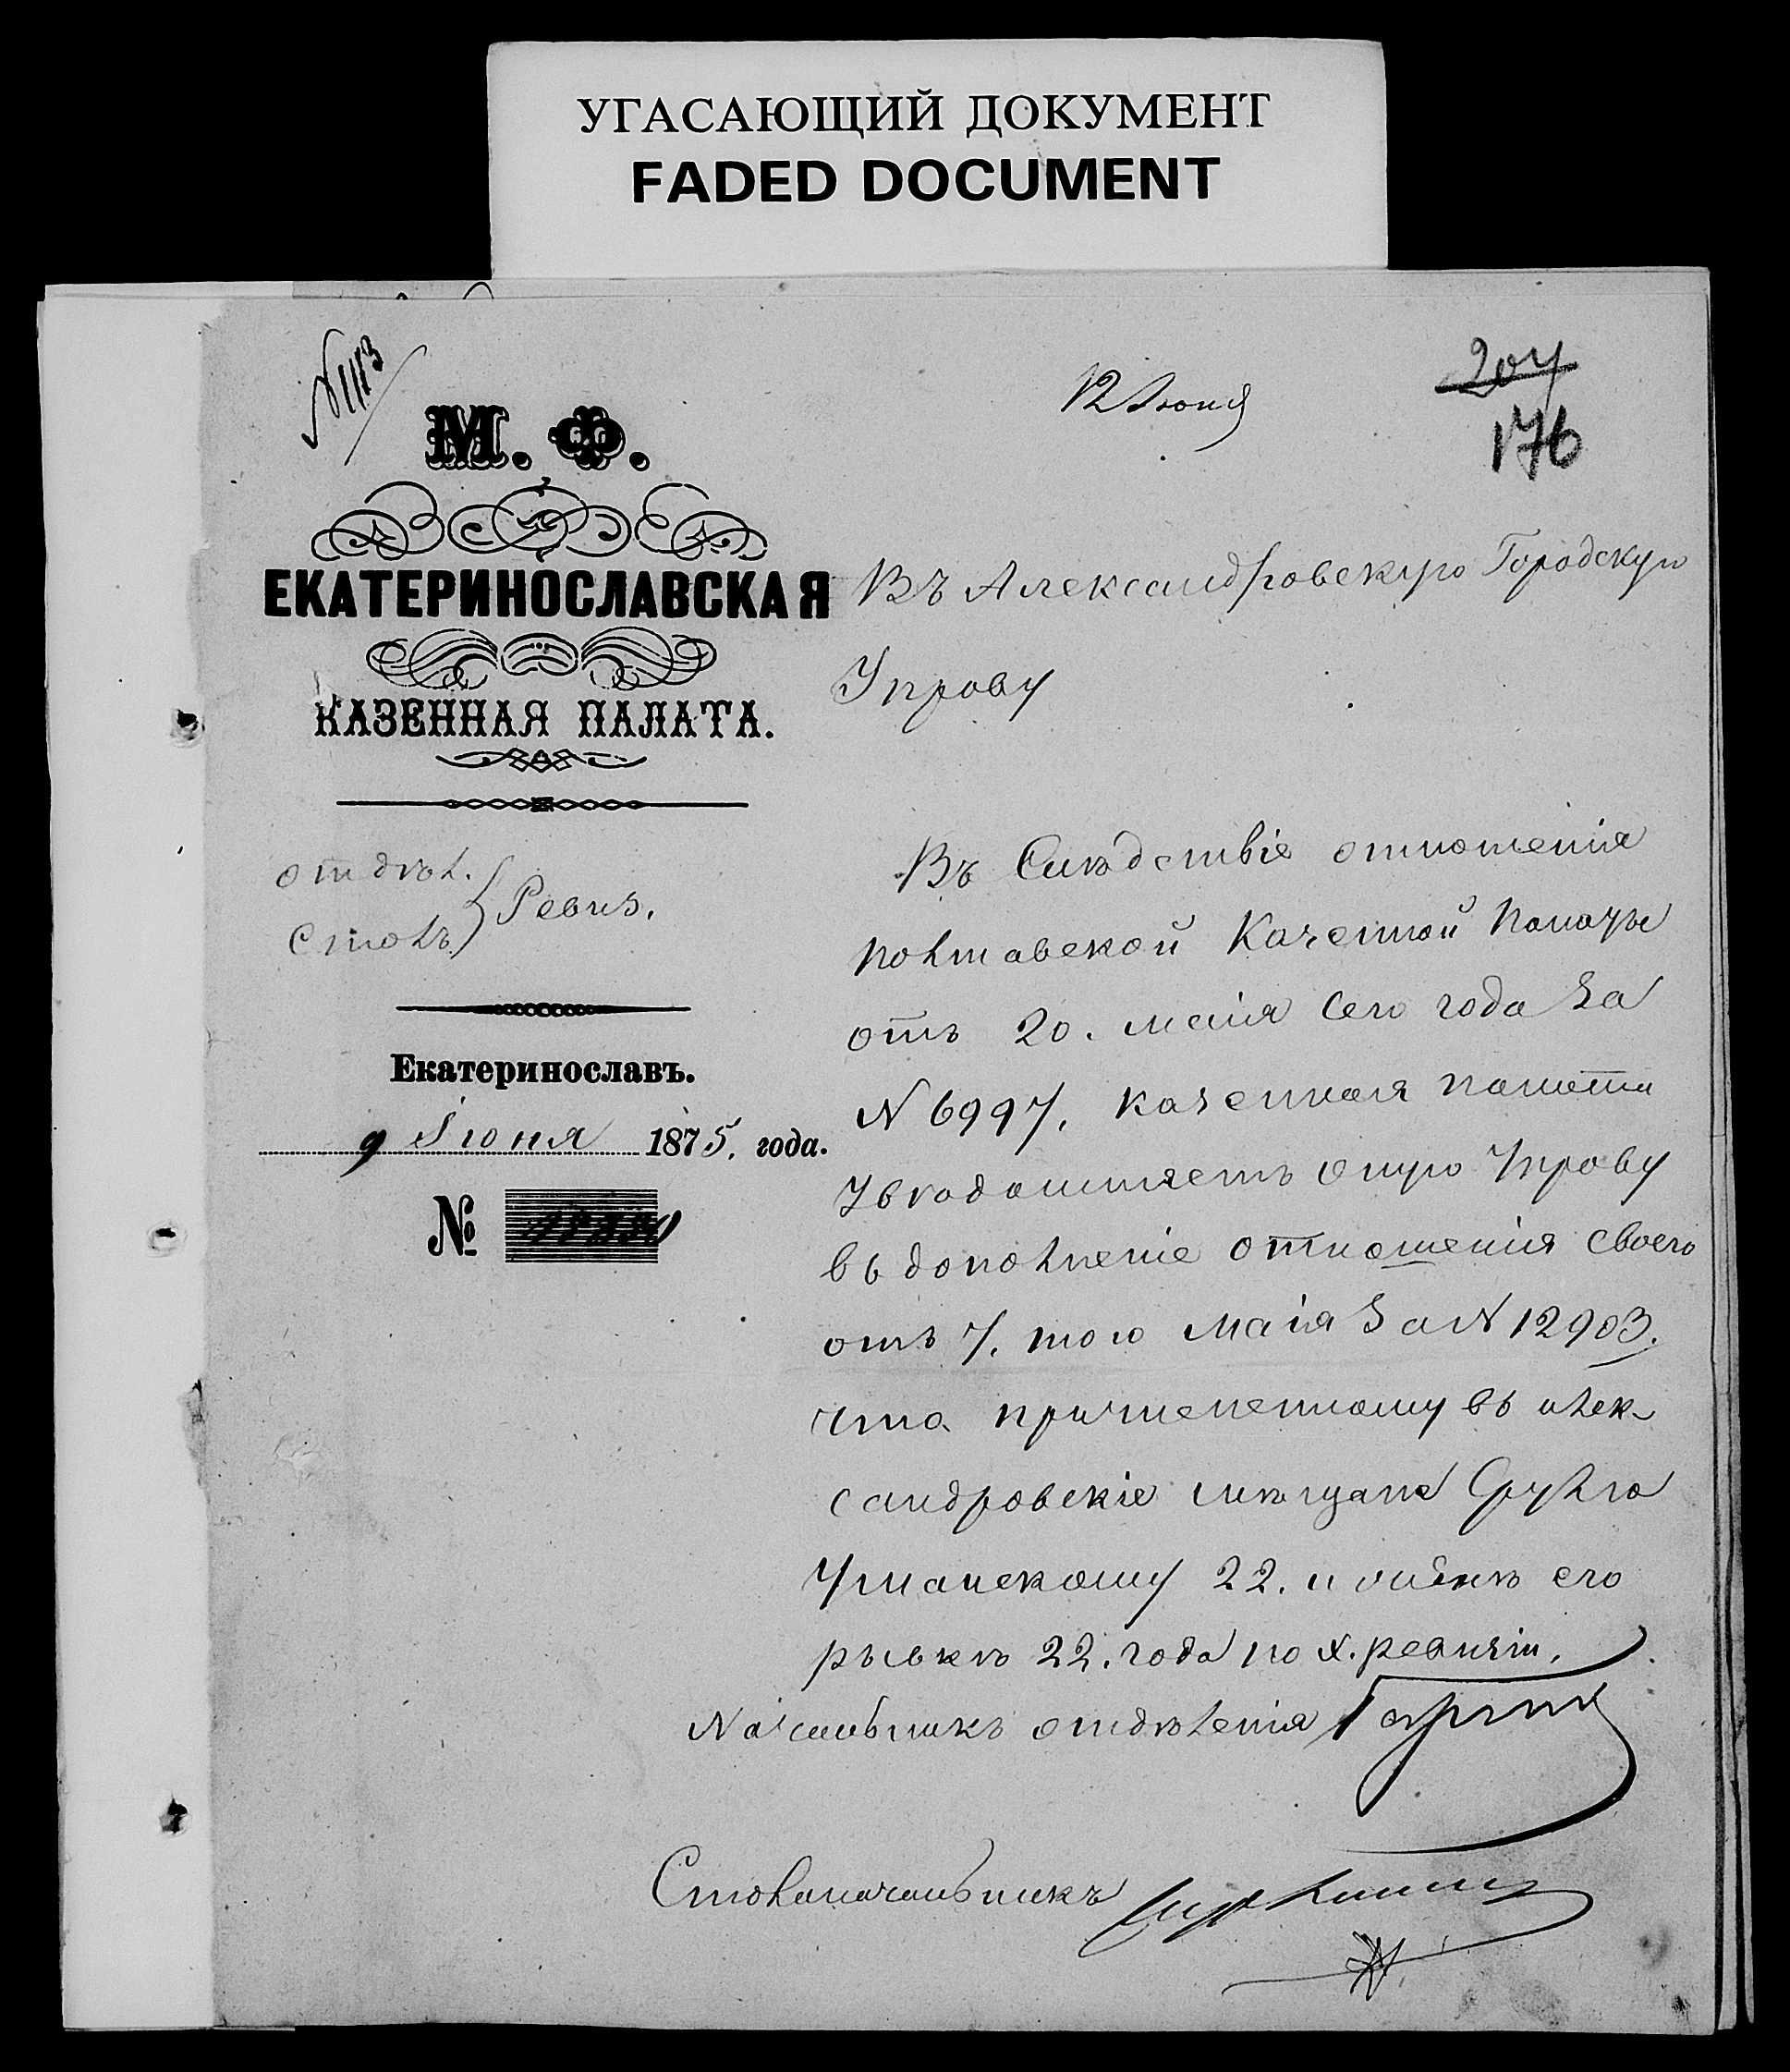 УГАСАЮЩИЙ ДОКУМЕНТ
FADED DOCUMENT
№ 1113
12 Июня
204
176
М. Ф.
ЕКАТЕРИНОСЛАВСКАЯ
КАЗЕННАЯ ПАЛАТА.
Отдѣл.
Столъ
Ревиз.
Екатеринославъ.
9 Іюня 1875. года.
№
Въ Александровскую Городскую
Управу
Въ Слѣдствіе отношенія
Полтавской Казенной Палаты
отъ 20. маія сего года за
N 6997, казенная палата
Увѣдомляетъ оную Управу
въ дополненіе отношенія своего
отъ 7. того маія за N 12903.
что причисленному въ Алек-
сандровскіе мѣщане Срулю
Уманскому 22. и женѣ его
Рывкѣ 22. года по X. ревизіи.
Начальникъ отдѣленія
Столоначальникъ